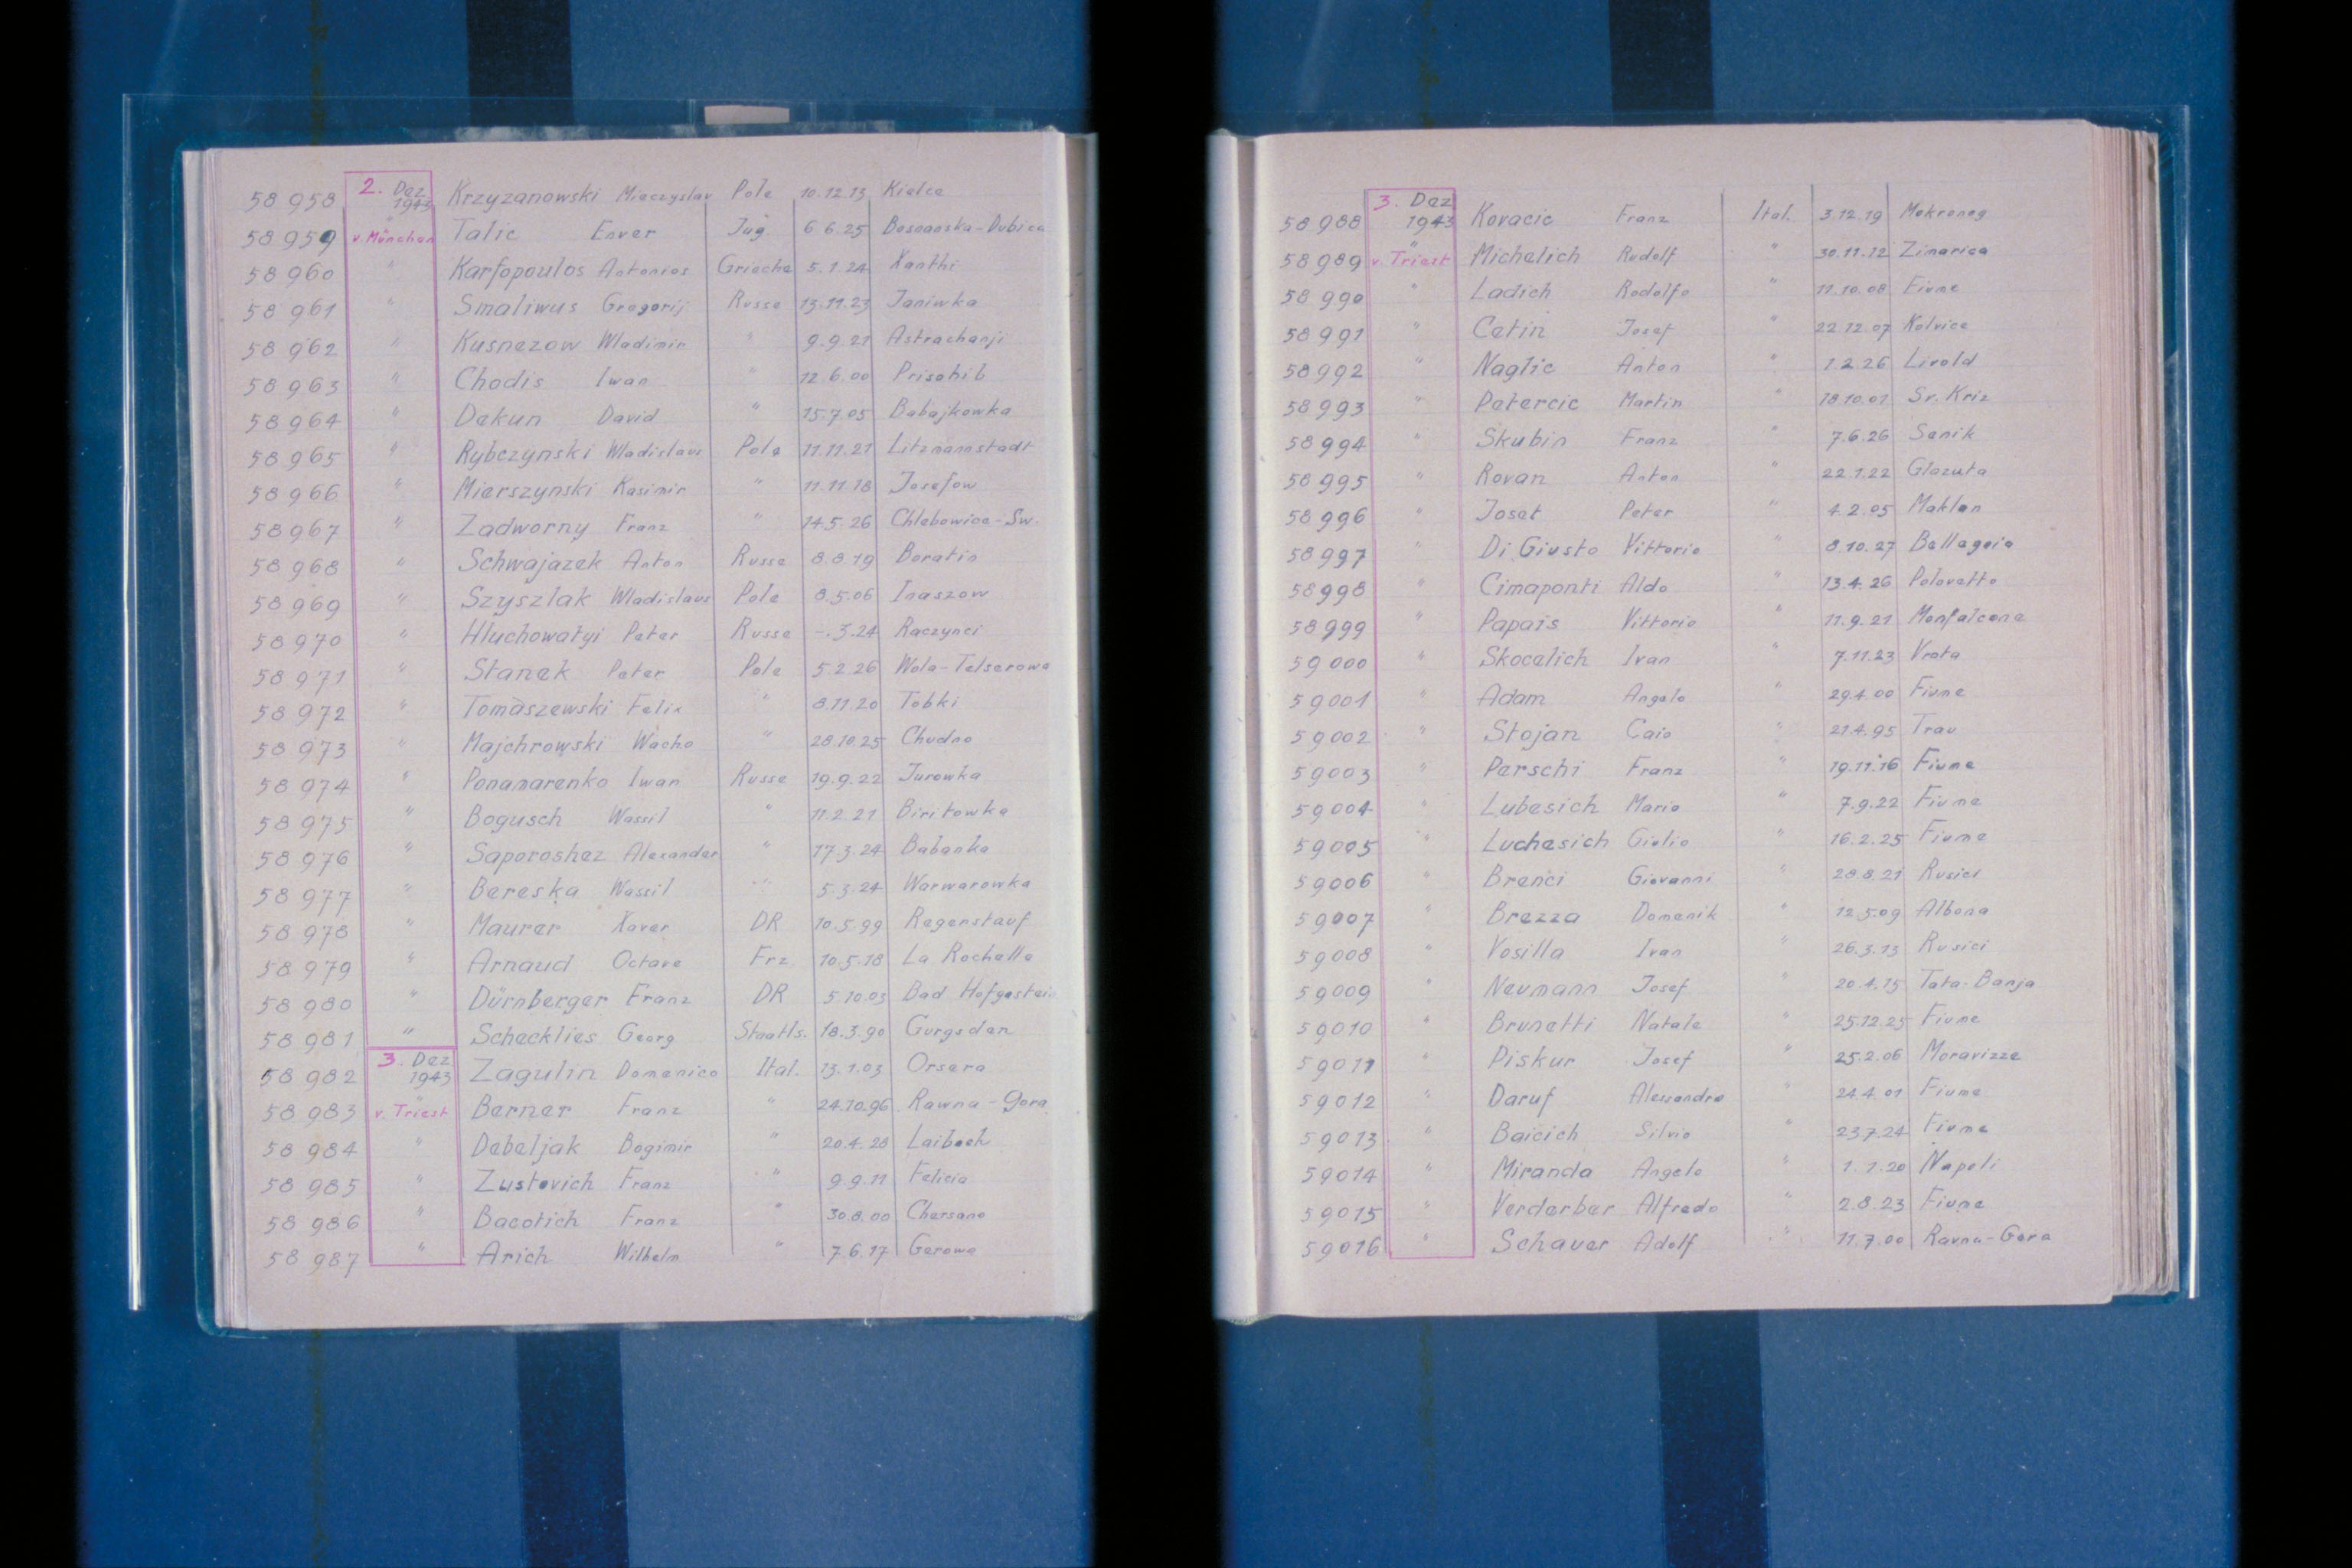 58 958 2. Dez. 1943 Krzyzanowski Mieczyslav Pole 10.12.13 Kielce
58 959 " v. München Talic Enver Jug 6.6.25 Bosnanska-Dubica
58 960 " Karfopoulos Antonios Grieche 5.1.24 Xanthi
58 961 " Smaliwus Gregorij Russe 13.11.23 Janiwka
58 962 " Kusnezow Wladimir " 9.9.21 Astrachanji
58 963 " Chodis Iwan " 12.6.00 Prisohib
58 964 " Dekun David " 15.7.05 Babajkowka
58 965 " Rybczynski Wladislaus Pole 11.11.21 Litzmannstadt
58 966 " Mierszynski Kasimir " 11.11.18 Josefow
58 967 " Zadworny Franz " 14.5.26 Chlebowice-Sw.
58 968 " Schwajazek Anton Russe 8.8.19 Boratin
58 969 " Szyszlak Wladislaus Pole 8.5.06 Inaszow
58 970 " Hluchowatyi Peter Russe -.3.24 Raczynci
58 971 " Stanek Peter Pole 5.2.26 Wola-Telserowa
58 972 " Tomaszewski Felix " 8.11.20 Tobki
58 973 " Majchrowski Wacho " 28.10.25 Chudno
58 974 " Ponamarenko Iwan Russe 19.9.22 Jurowka
58 975 " Bogusch Wassil " 11.2.21 Biritowka
58 976 " Saporoshez Alexander " 17.3.24 Babanka
58 977 " Bereska Wassil " 5.3.24 Warwarowka
58 978 " Maurer Xaver DR 10.5.99 Regenstauf
58 979 " Arnaud Octave Frz. 10.5.18 La Rochelle
58 980 " Dürnberger Franz DR 5.10.03 Bad Hofgastein
58 981 " Schecklies Georg Staatls. 18.3.90 Gurgsden
58 982 3. Dez 1943 Zagulin Domenico Ital. 13.1.03 Orsero
58 983 " v. Triest Berner Franz " 24.10.96 Rawna-Gora
58 984 " Debeljak Bogimir " 20.4.28 Laibach
58 985 " Zustovich Franz " 9.9.11 Felicia
58 986 " Bacotich Franz " 30.8.00 Chersano
58 987 " Arich Wilhelm " 7.6.17 Gerowo
58 988 3. Dez 1943 Kovacic Franz Ital. 3.12.19 Mokronog
58 989 " v. Triest Michelich Rudolf " 30.11.12 Zimarica
58 990 " Ladich Rodolfo " 11.10.08 Fiume
58 991 " Cetin Josef " 22.12.07 Kolvice
58 992 " Naglic Anton " 1.2.26 Livold
58 993 " Petercic Martin " 18.10.01 Sv. Kriz
58 994 " Skubin Franz " 7.6.26 Senik
58 995 " Rovan Anton " 22.1.22 Glazuta
58 996 " Joset Peter " 4.2.05 Maklen
58 997 " Di Giusto Vittorio " 8.10.27 Bellagoio
58 998 " Cimaponti Aldo " 13.4.26 Polovetto
58 999 " Papais Vittorio " 11.9.21 Monfalcone
59 000 " Skocelich Ivan " 7.11.23 Vrata
59 001 " Adam Angelo " 29.4.00 Fiume
59 002 " Stojan Caio " 21.4.95 Trau
59 003 " Perschi Franz " 19.11.16 Fiume
59 004 " Lubesich Mario " 7.9.22 Fiume
59 005 " Luchesich Giulio " 16.2.25 Fiume
59 006 " Brenci Giovanni " 28.8.21 Rusici
59 007 " Brezza Domenik " 12.5.09 Albona
59 008 " Vosilla Ivan " 26.3.13 Rusici
59 009 " Neumann Josef " 20.4.15 Tata-Banja
59 010 " Brunetti Natale " 25.12.25 Fiume
59 011 " Piskur Josef " 25.2.06 Moravizze
59 012 " Daruf Alessandro " 24.4.01 Fiume
59 013 " Baicich Silvio " 23.7.24 Fiume
59 014 " Miranda Angelo " 1.1.20 Napoli
59 015 " Verderber Alfredo " 2.8.23 Fiume
59 016 " Schauer Adolf " 11.7.00 Ravna-Gora